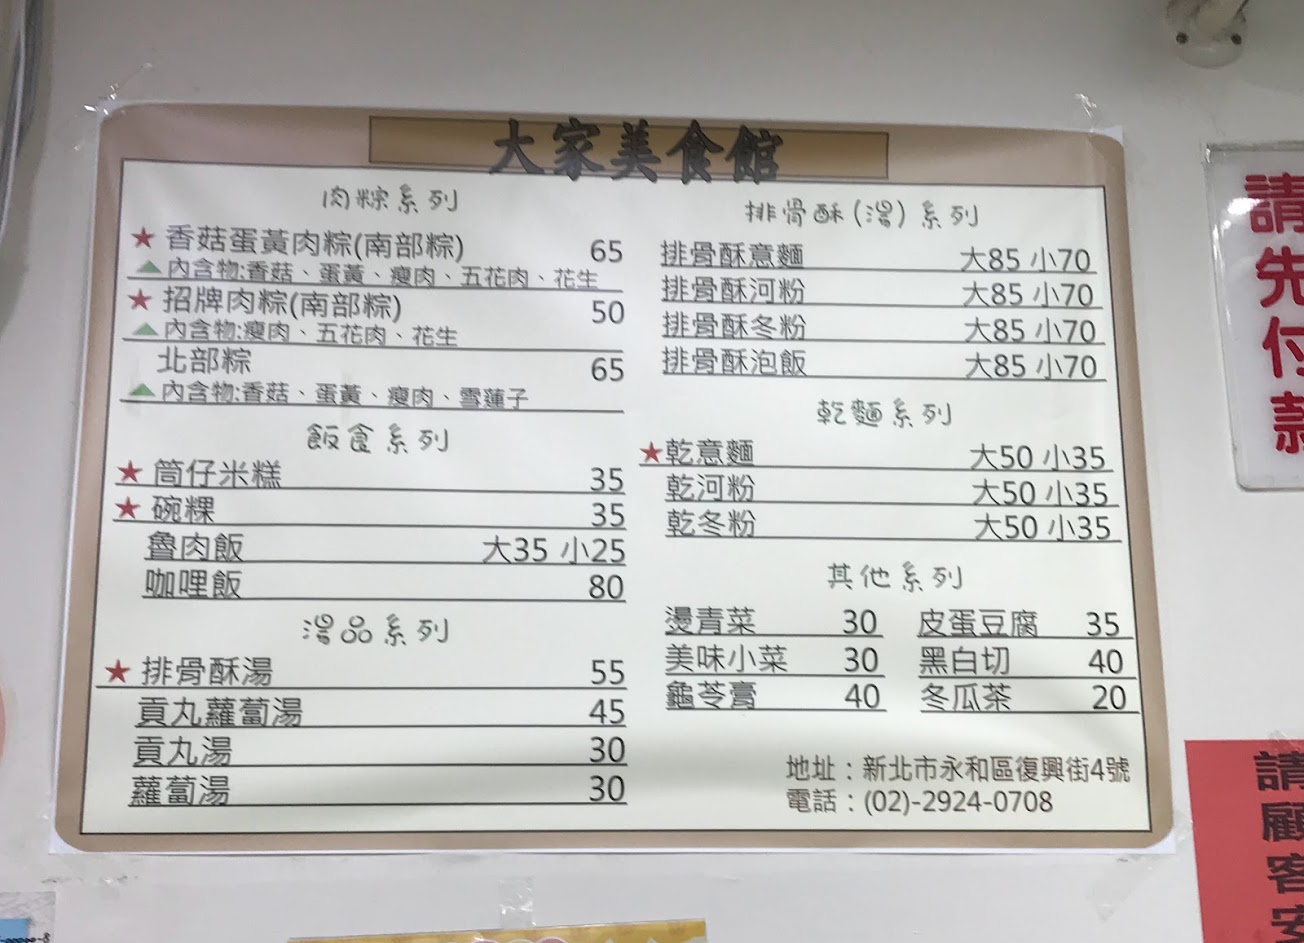 大家美食館
肉粽系列
★ 香菇蛋黃肉粽(南部粽) 65
內含物:香菇、蛋黃、瘦肉、五花肉、花生
★ 招牌肉粽(南部粽) 50
內含物:瘦肉、五花肉、花生
北部粽 65
內含物:香菇、蛋黃、瘦肉、雪蓮子
飯食系列
★ 筒仔米糕 35
★ 碗粿 35
魯肉飯 大35 小25
咖哩飯 80
湯品系列
★ 排骨酥湯 55
貢丸蘿蔔湯 45
貢丸湯 30
蘿蔔湯 30
排骨酥(湯)系列
排骨酥意麵 大85 小70
排骨酥河粉 大85 小70
排骨酥冬粉 大85 小70
排骨酥泡飯 大85 小70
乾麵系列
★乾意麵 大50 小35
乾河粉 大50 小35
乾冬粉 大50 小35
其他系列
燙青菜 30 皮蛋豆腐 35
美味小菜 30 黑白切 40
龜苓膏 40 冬瓜茶 20
地址：新北市永和區復興街4號
電話：(02)-2924-0708
請先付款
請顧客